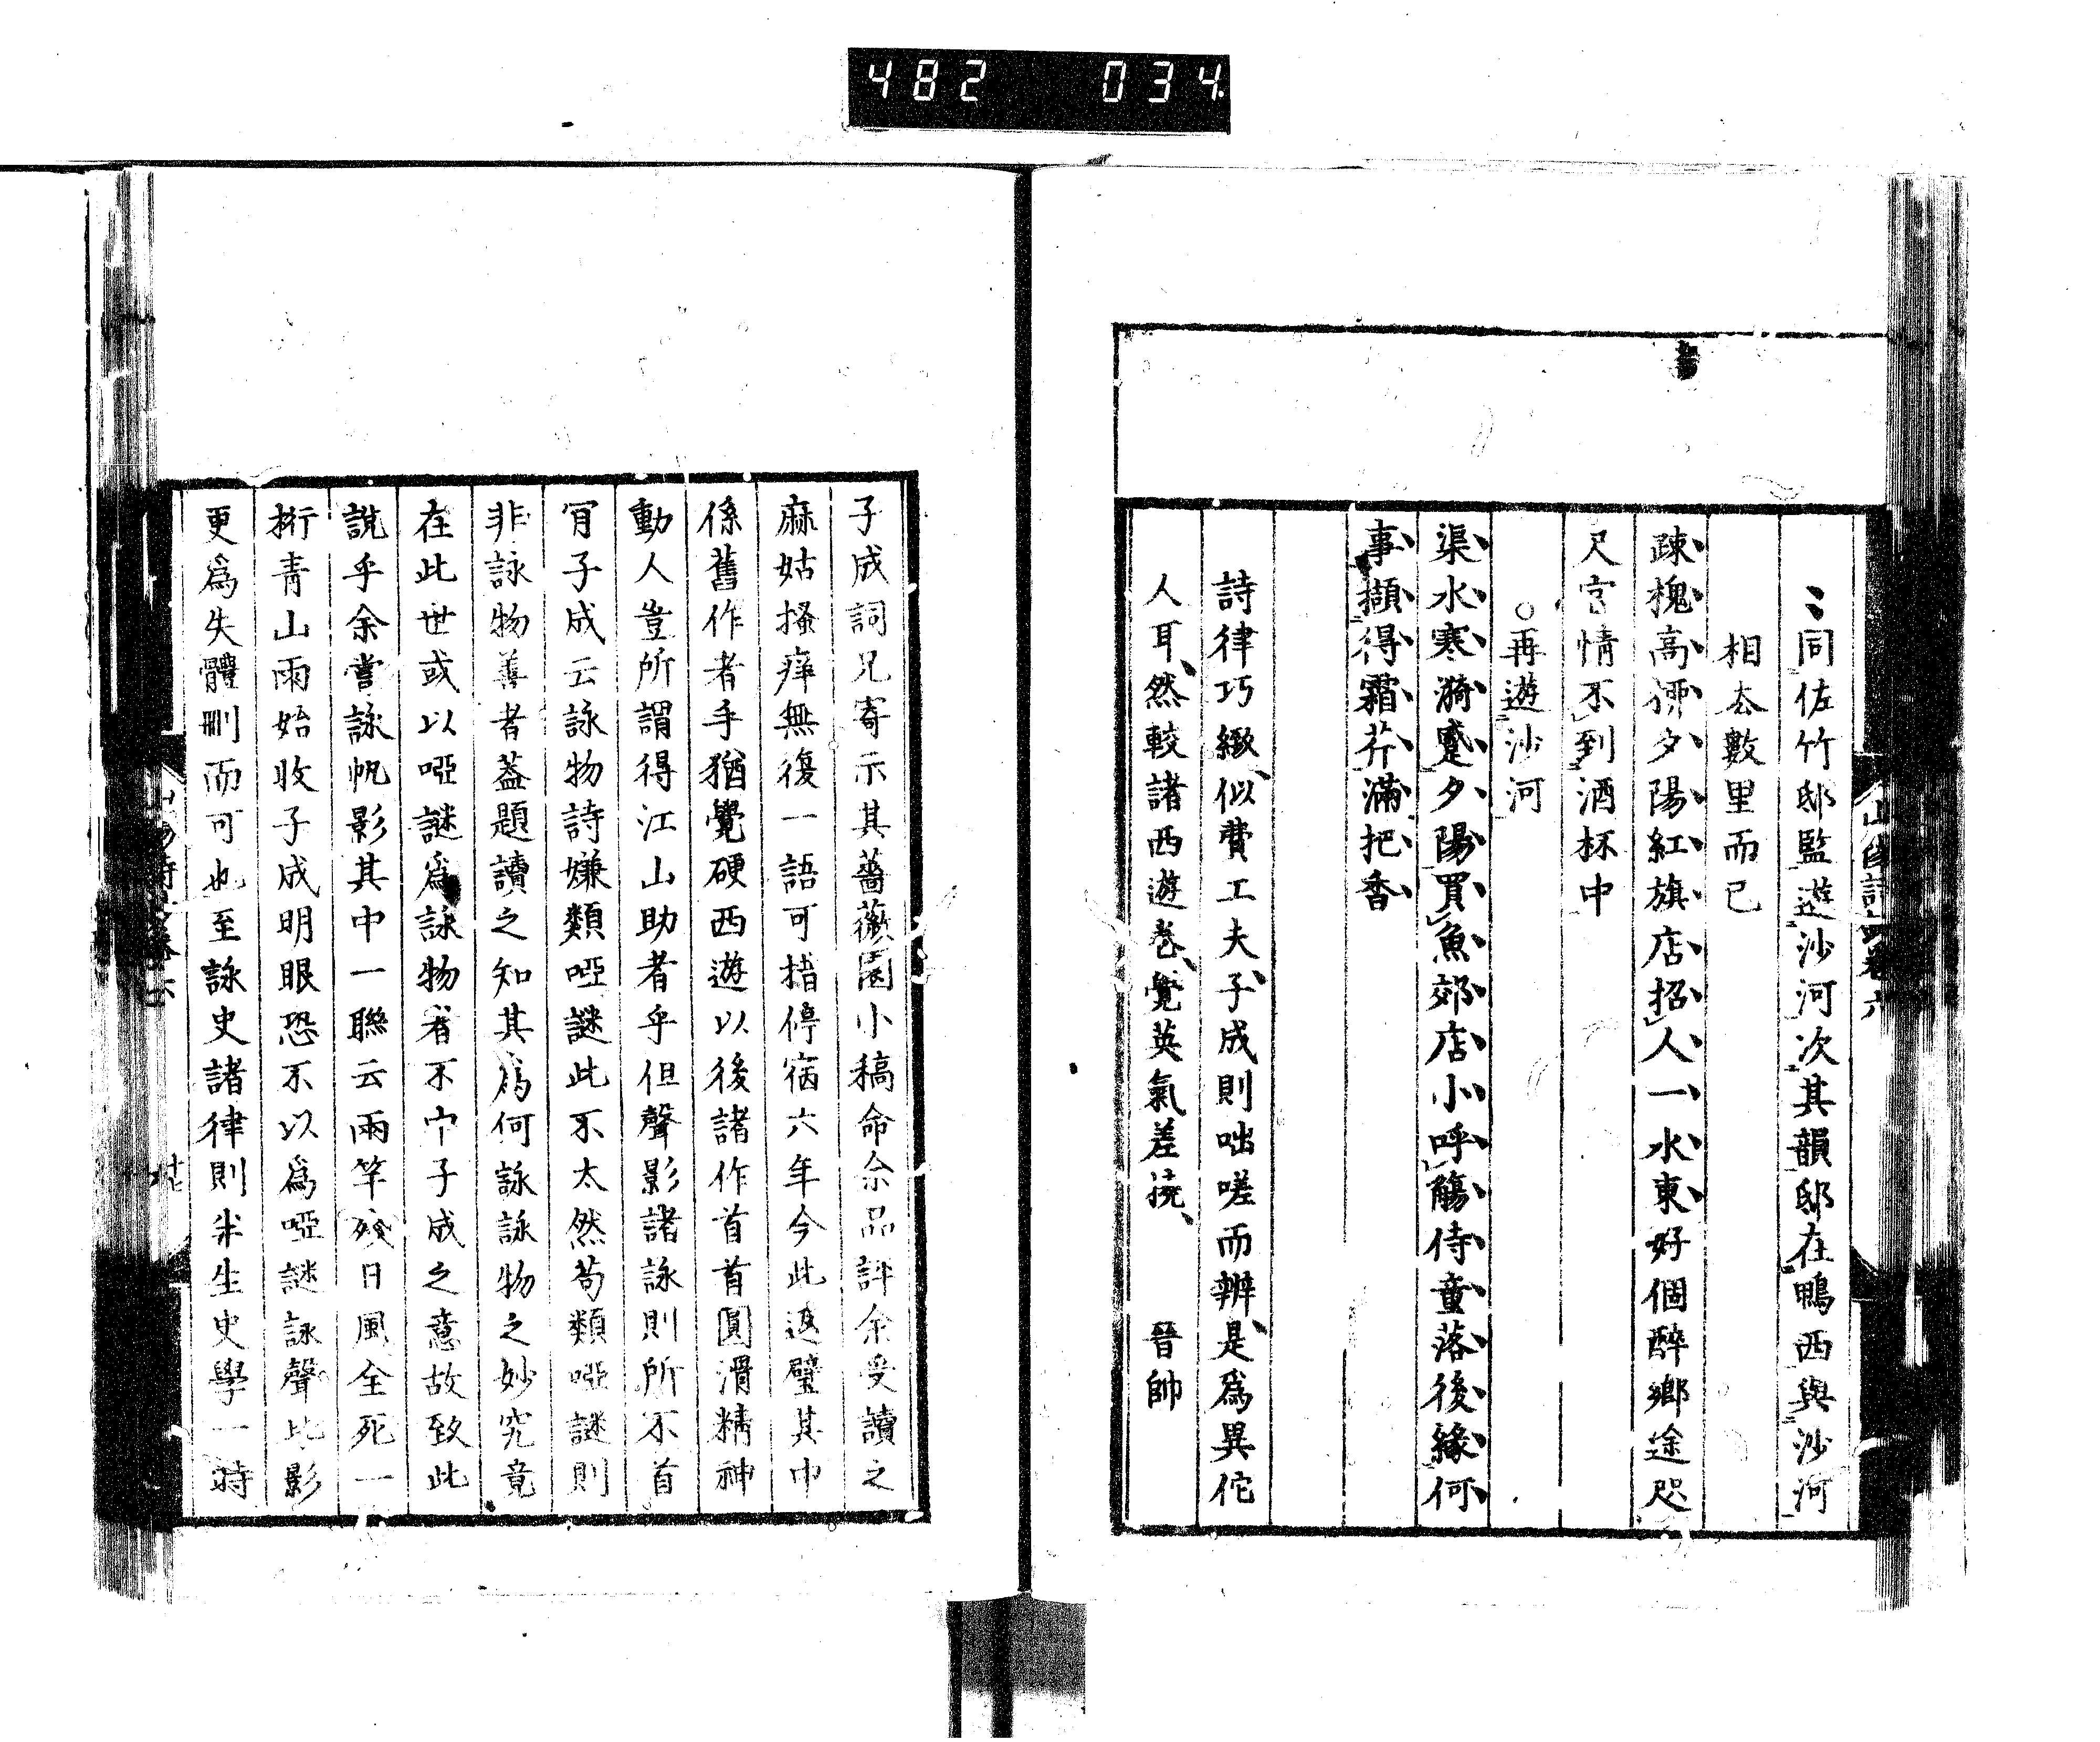 482 034
同佐竹邸監遊沙河次其韻邸在鴨西與沙河
相去數里而已
疎槐高柳夕陽紅旗店招人一水東好個醉鄉途咫
尺宦情不到酒杯中
○再遊沙河
渠水寒漪蹙夕陽買魚郊店小呼觴侍童落後緣何
事擷得霜芥滿把香
詩律巧緻似費工夫子成則咄嗟而辨是爲異佗
人耳然較諸西遊卷覺英氣差撓 晉帥
子成詞兄寄示其薔薇園小稿命余品評余受讀之
麻姑搔痒無復一語可措停宿六年今此返璧其中
係舊作者乎猶覺硬西遊以後諸作首首圓滑精神
動人豈所謂得江山助者乎但聲影諸詠則所不首
肎子成云詠物詩嫌類啞謎此不太然苟類啞謎則
非詠物善者蓋題讀之知其爲何詠詠物之妙究竟
在此世或以啞謎爲詠物者不中子成之意故致此
說乎余嘗詠帆影其中一聯云兩竿殘日風全死一
桁青山雨始收子成明眼恐不以爲啞謎詠聲比影
更爲失體刪而可也至詠史諸律則半生史學一時